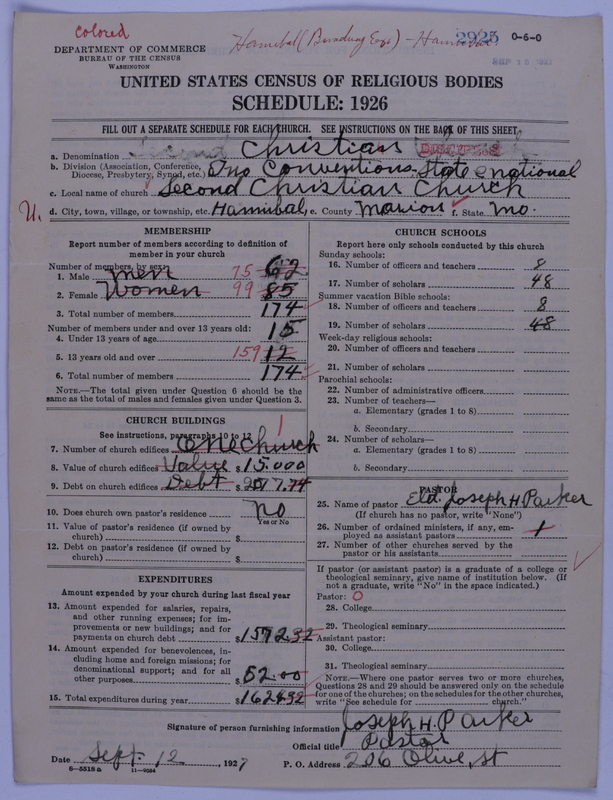 colored
Hannibal
2925
0-6-0
DEPARTMENT OF COMMERCE
BUREAU OF THE CENSUS
WASHINGTON
UNITED STATES CENSUS OF RELIGIOUS BODIES
SCHEDULE: 1926
FILL OUT A SEPARATE SCHEDULE FOR EACH CHURCH. SEE INSTRUCTIONS ON THE BACK OF THIS SHEET
a. Denomination Christian
b. Division (Association, Conference, Diocese, Presbytery, Synod, etc.) Two Conventions-State & national
c. Local name of church Second Christian Church
U. d. City, town, village, or township, etc. Hannibal, e. County Marion f. State Mo.
MEMBERSHIP
Report number of members according to definition of
member in your church
Number of members, by sex:
1. Male men 75 62
2. Female Women 99 85
3. Total number of members 174
Number of members under and over 13 years old:
4. Under 13 years of age 15
5. 13 years old and over 159 12
6. Total number of members 174
NOTE.—The total given under Question 6 should be the
same as the total of males and females given under Question 3.
CHURCH BUILDINGS
See instructions, paragraphs 10 to 12
7. Number of church edifices one church 1
8. Value of church edifices Value $15.000
9. Debt on church edifices Debt $2077.74
10. Does church own pastor's residence no
Yes or No
11. Value of pastor's residence (if owned by
church) $
12. Debt on pastor's residence (if owned by
church) $
EXPENDITURES
Amount expended by your church during last fiscal year
13. Amount expended for salaries, repairs,
and other running expenses; for im-
provements or new buildings; and for
payments on church debt $1572.92
14. Amount expended for benevolences, in-
cluding home and foreign missions; for
denominational support; and for all
other purposes $52.00
15. Total expenditures during year $1624.92
CHURCH SCHOOLS
Report here only schools conducted by this church
Sunday schools:
16. Number of officers and teachers 8
17. Number of scholars 48
Summer vacation Bible schools:
18. Number of officers and teachers 8
19. Number of scholars 48
Week-day religious schools:
20. Number of officers and teachers
21. Number of scholars
Parochial schools:
22. Number of administrative officers
23. Number of teachers—
a. Elementary (grades 1 to 8)
b. Secondary
24. Number of scholars—
a. Elementary (grades 1 to 8)
b. Secondary
PASTOR
25. Name of pastor Eld. Joseph H. Parker
(If church has no pastor, write "None")
26. Number of ordained ministers, if any, em-
ployed as assistant pastors 1
27. Number of other churches served by the
pastor or his assistants
If pastor (or assistant pastor) is a graduate of a college or
theological seminary, give name of institution below. (If
not a graduate, write "No" in the space indicated.)
Pastor: 0
28. College
29. Theological seminary
Assistant pastor:
30. College
31. Theological seminary
NOTE.—Where one pastor serves two or more churches,
Questions 28 and 29 should be answered only on the schedule
for one of the churches; on the schedules for the other churches,
write "See schedule for church."
Signature of person furnishing information Joseph H. Parker
Official title Pastor
Date Sept. 12, 1927 P. O. Address 206 Olive, st
8-5518a 11-9684